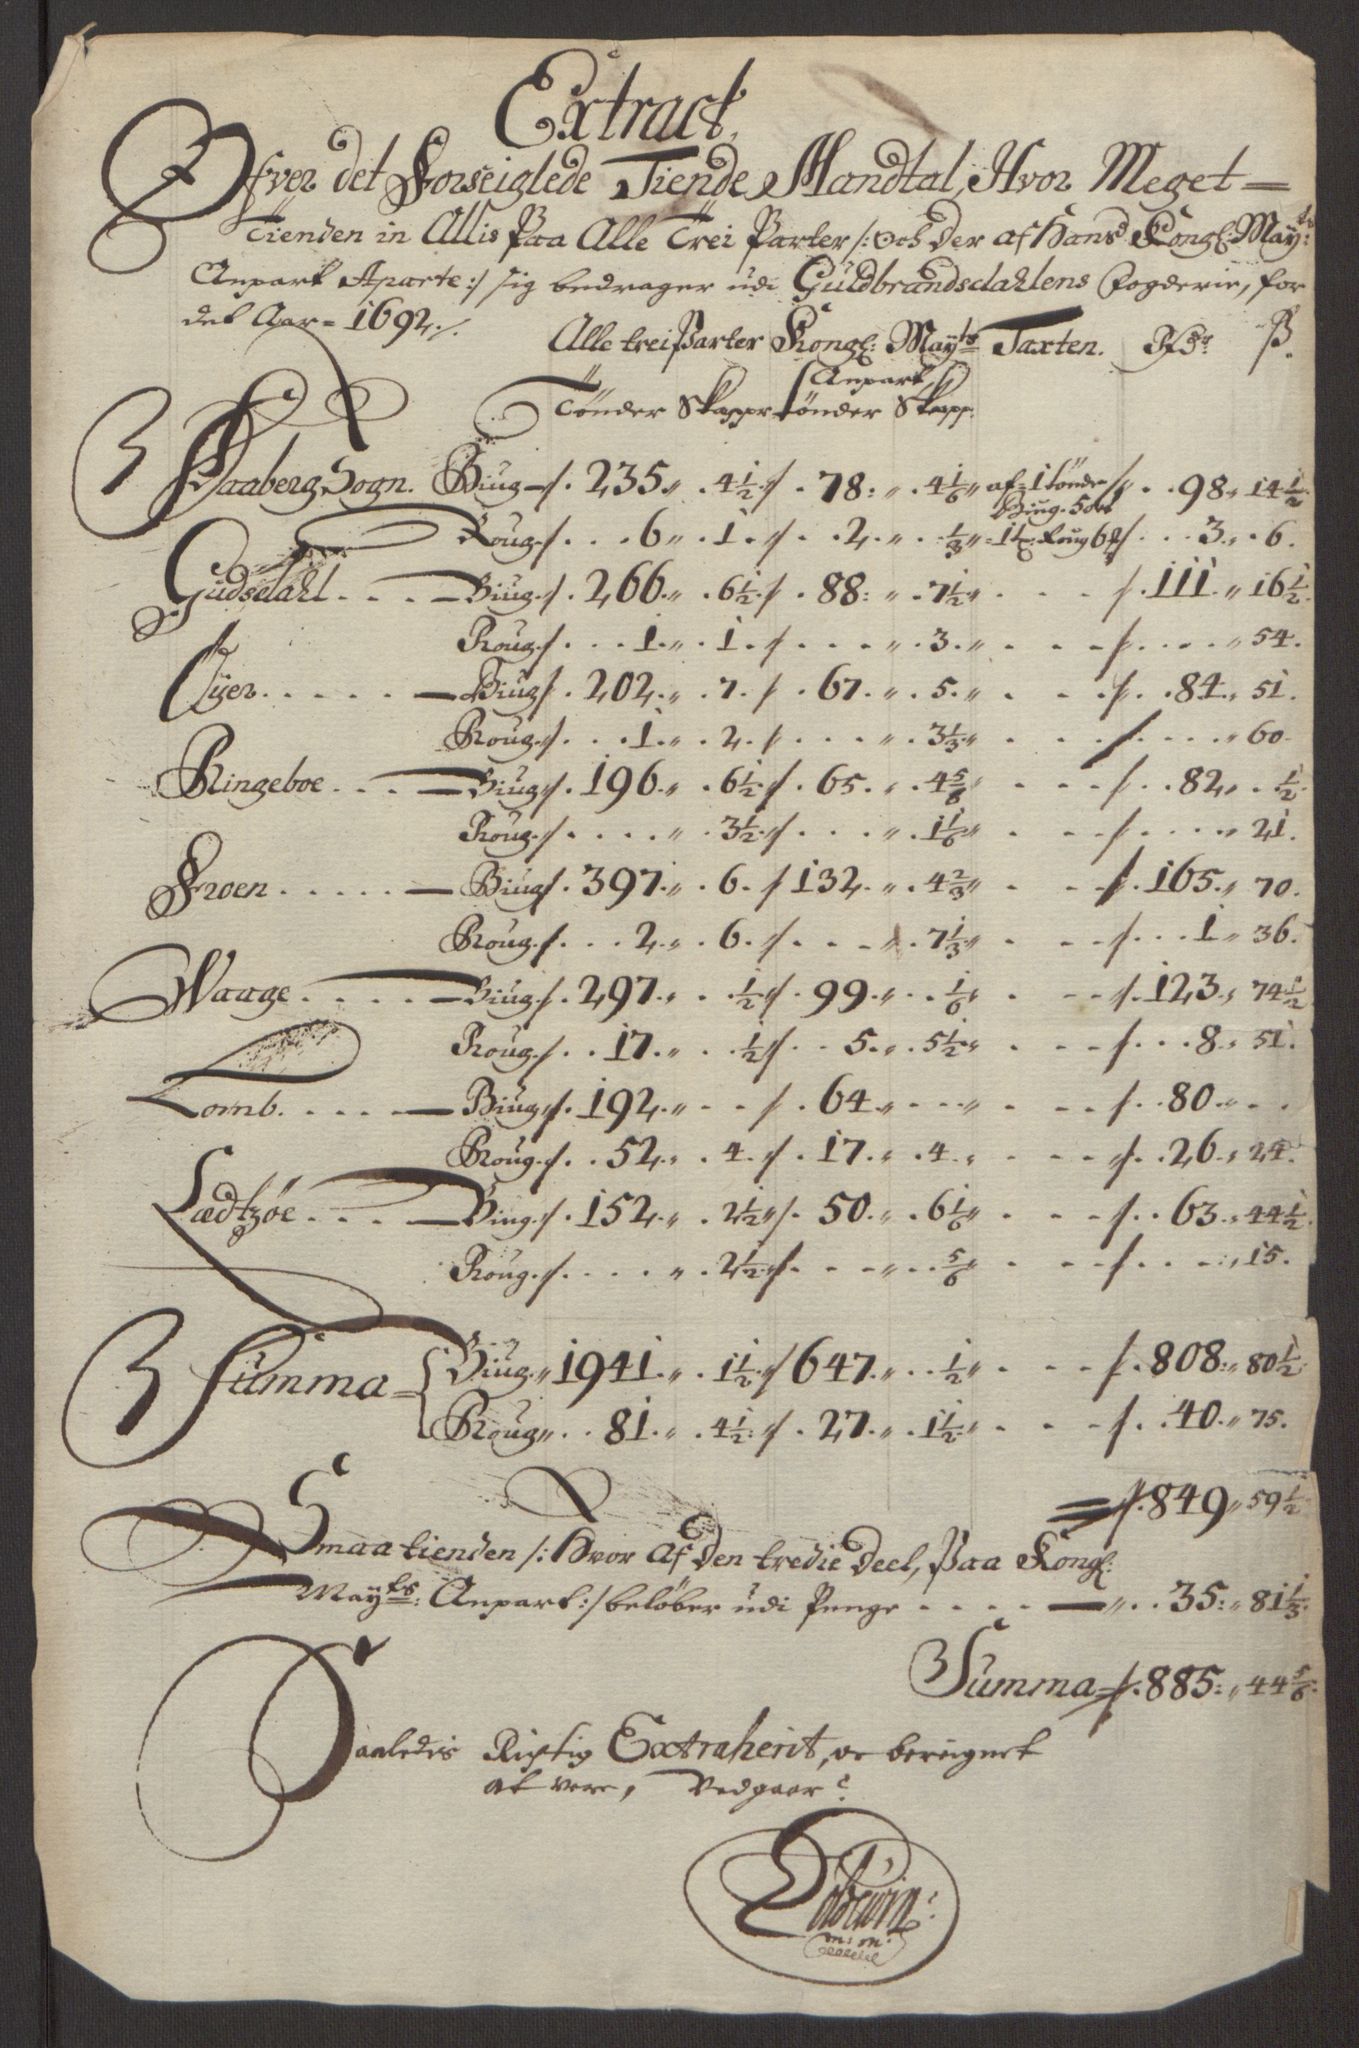 Extract,
Ofver det Forseiglede Tiende Mandtal, Hvor Meget
Tienden in Allis Paa Alle Trei Parter /: och der af Hans Kongl: May:ts
Anpart Aparte:/ sig bedrager udi Guldbrandsdahlens Fogderie, for
det Aar 1692 ./.
Alle trei Parter Kongl: Mayts Taxten. Rdr ß.
Anpart
Tønder Skappr Tønder Skapp.
Faaberg Sogn. Biug 235 4½ 78 4 1/6 af 1 tønde Biug 98 14½
Roug 6 1 2 1/3 1 tr. Roug 3 6
Gudsdahl Biug 266 6½ 88 7½ 111 16½
Roug 1 1 3 54
Øyer Biug 202 7 67 5 84 51
Roug 1 2 3 1/3 60
Ringeboe Biug 196 6½ 65 4 5/6 82 ½
Roug 3½ 1 1/6 21
Froen Biug 397 6 132 4 2/3 165 70
Roug 2 6 7 1/3 1 36
Waage Biug 297 ½ 99 1/6 123 74½
Roug 17 ½ 5 5½ 8 51
Lomb Biug 192 64 80
Roug 52 4 17 4 26 24
Lædtzøe Biug 152 2½ 50 6 1/6 63 44½
Roug 2½ 5/6 15
Summa Biug 1941 1½ 647 ½ 808 80½
Roug 81 4½ 27 1½ 40 75
849 59½
Smaa tienden /: Hvor Af Den tredie Deel, Paa Kongl:
Mayts: Anpart:/ beløber udi Penge 35 81 1/3
Summa 885 44 5/6
Saaledis Rigtig Extraherit, oc beregnet
at vere, Vedgaar
m: m: